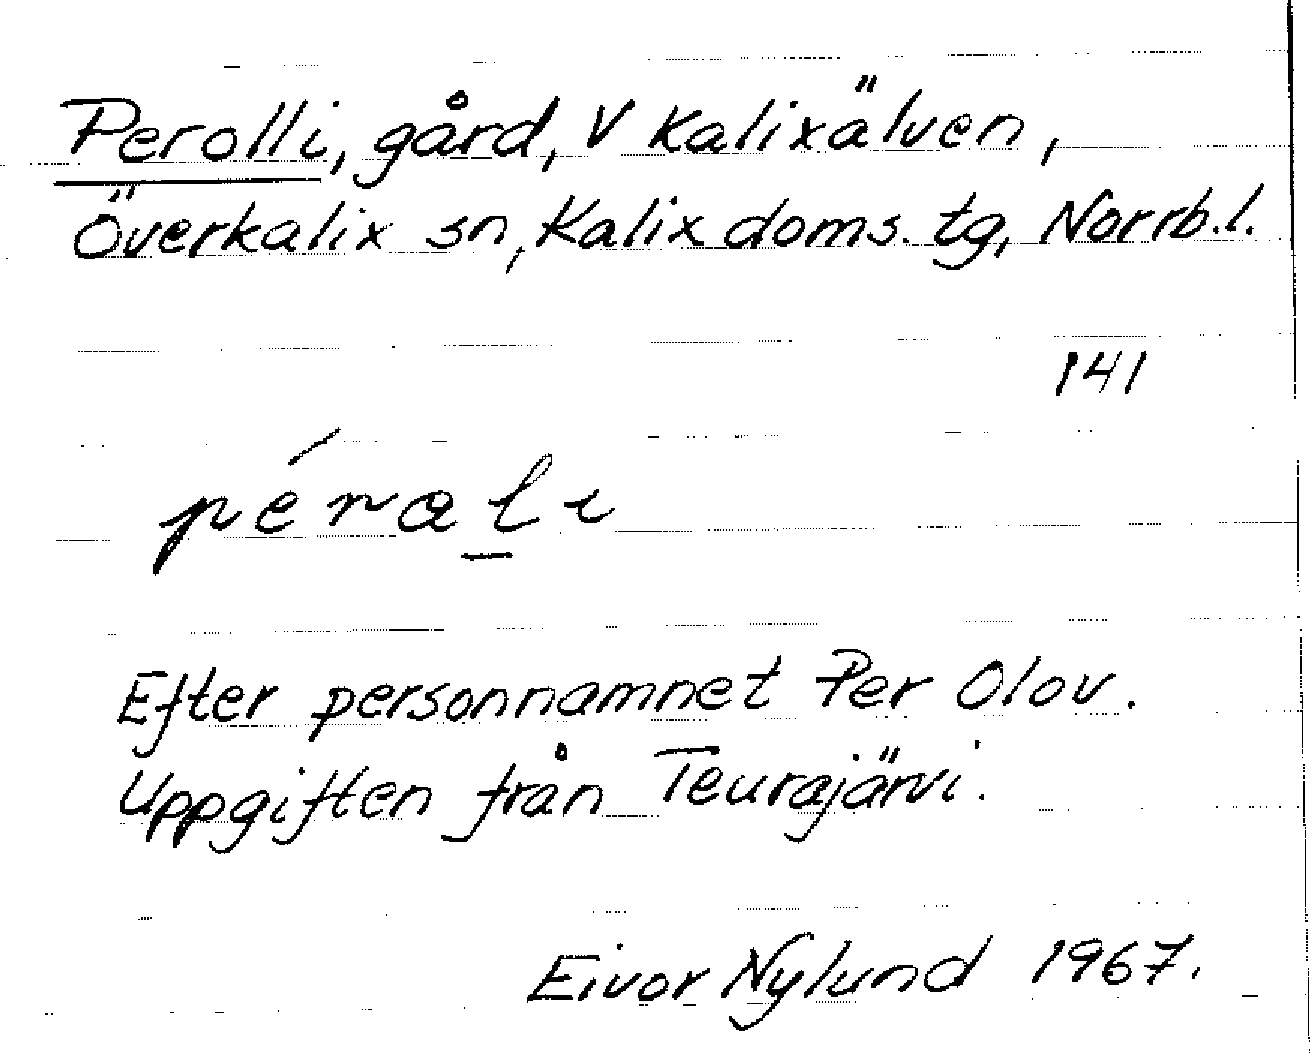 Perolli, gård, V Kalixälven,
Överkalix sn, Kalix doms. tg, Norrb.l.
141
pérali
Efter personnamnet Per Olov.
Uppgiften från Teurajärvi.
Eivor Nylund 1967.